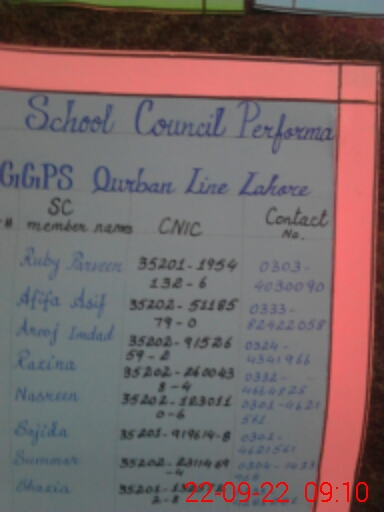 School Council Performa
GGPS Qurban Line Lahore
SC member names CNIC Contact No.
Ruby Parveen 35201-1954 0303-
132-6 4030090
Afifa Asif 35202-51185 0333-
79-0 82422058
Arooj Imdad 35202-91526 0324-
59-2 4341966
Razina 35202-260043 0332-
8-4
Nasreen 35202-123011 0301-4621
0-6 561
Sajida 35201-919614-8 0302-
4621561
35202-2311469
-4
Shazia 35201-
22-09-22 09:10